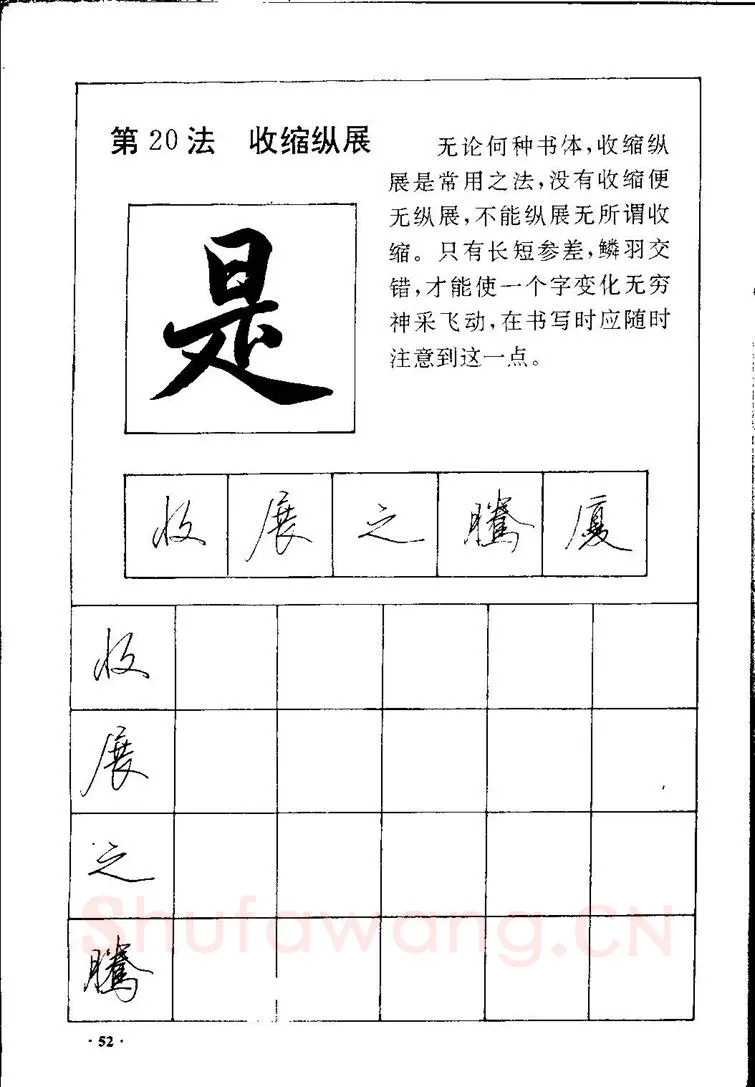 第20法 收缩纵展
无论何种书体,收缩纵
展是常用之法,没有收缩便
无纵展,不能纵展无所谓收
缩。只有长短参差,鳞羽交
错,才能使一个字变化无穷
神采飞动,在书写时应随时
注意到这一点。
是
收 展 之 腾 厦
收
展
之
腾
Shufawang.CN
·52·